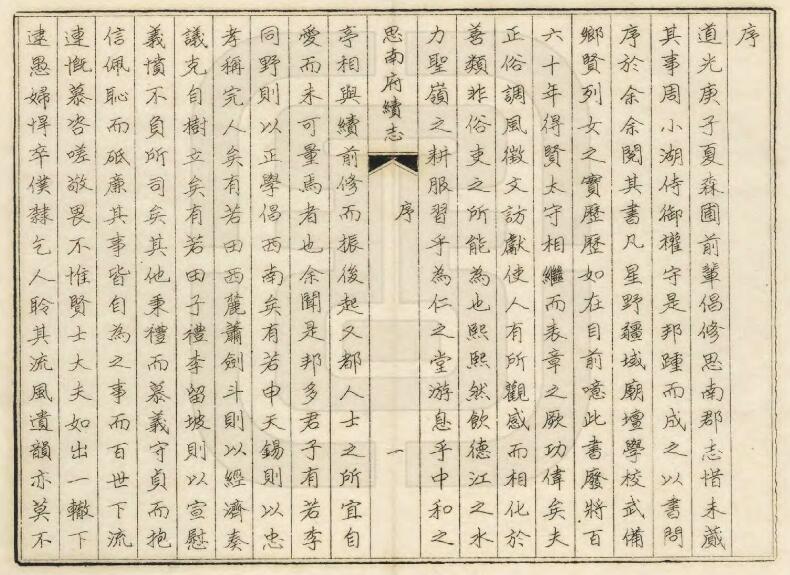 序
道光庚子夏森圃前輩倡修思南郡志惜未蕆
其事周小湖侍御權守是邦踵而成之以書問
序於余余閱其書凡星野疆域廟壇學校武備
鄉賢列女之實歷歷如在目前噫此書廢將百
六十年得賢太守相繼而表章之厥功偉矣夫
正俗調風徵文訪獻使人有所觀感而相化於
善類非俗吏之所能為也熙熙然飲德江之水
力聖嶺之耕服習乎為仁之堂游息乎中和之
思南府續志 序 一
亭相與續前修而振後起又都人士之所宜自
愛而未可量焉者也余聞是邦多君子有若李
同野則以正學倡西南矣有若申天錫則以忠
孝稱完人矣有若田西麓蕭劍斗則以經濟奏
議克自樹立矣有若田子禮李留坡則以宣慰
義憤不負所司矣其他秉禮而慕義守貞而抱
信佩恥而砥廉其事皆自為之事而百世下流
連慨慕咨嗟敬畏不惟賢士大夫如出一轍下
逮愚婦悍卒僕隸乞人聆其流風遺韻亦莫不